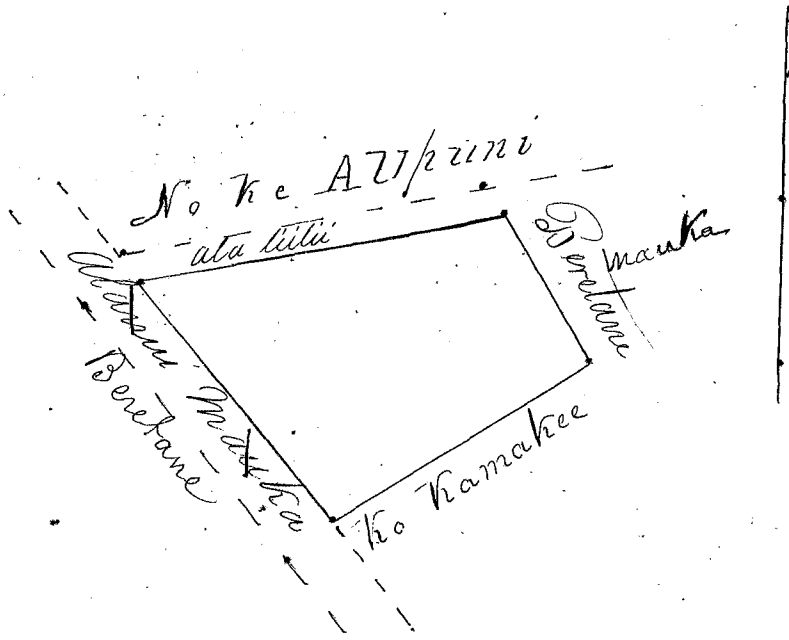 No Ke Aupuni
ala liilii
Beretane
mauka
Alanui Mauka
Beretane
Ko Kamakee